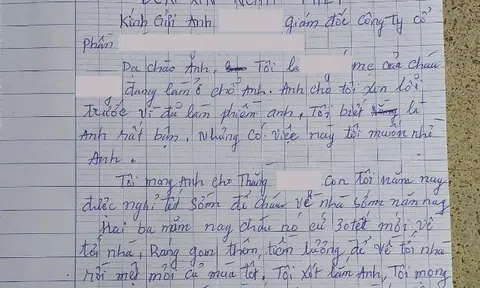 ĐƠN XIN NGHỈ
Kính Gửi Anh giám đốc Công ty cổ
Phần
Dạ chào Anh, Tôi là mẹ của cháu
đang làm ở chổ Anh. Anh cho tôi xin lỗi
trước vì đả làm phiền anh, Tôi biết là
Anh rất bận, Nhưng có việc này tôi muốn nhờ
Anh.
Tôi mong Anh cho Thằng Con tôi năm nay
được nghỉ tết sớm để cháu về nhà sớm năm nay
Hai ba năm nay cháu nó cứ 30 tết mới về
tới nhà, Ráng gom thêm tiền lương, để về tới nhà
rồi mệt mỏi cả mùa tết. Tội xót lắm Anh, Tôi mong